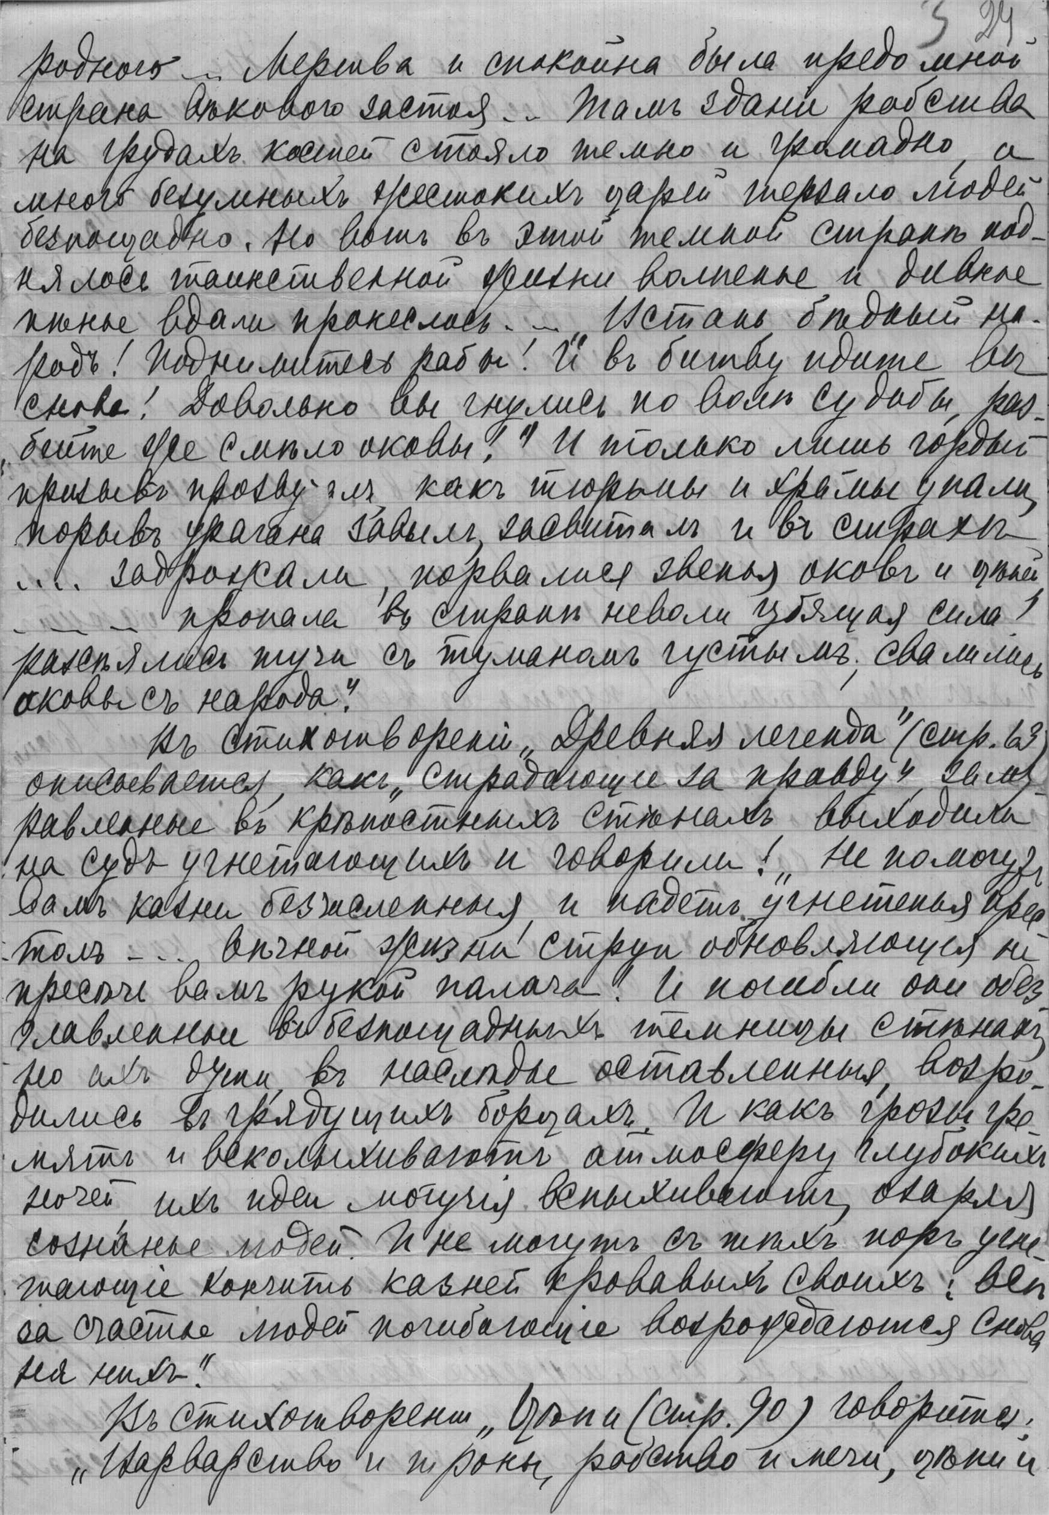 3 24
роднаго ... Мертва и спокойна была предо мной
страна вѣкового застоя ... Тамъ зданіе рабства
на грудахъ костей стояло темно и громадно, и
много безумныхъ жестокихъ царей терзало людей
безпощадно. Но вотъ въ этой темной странѣ под-
нялось таинственной жизни волненье и дивное
пѣнье вдали пронеслось ... "Встань, бѣдный на-
родъ! Поднимитесь рабы! И въ битву идите вы
снова! Довольно вы гнулись по волѣ судьбы, раз-
бейте же смѣло оковы!" И только лишь гордый
призывъ прозвучалъ какъ тюрьмы и храмы упали,
порывъ урагана завылъ, засвисталъ и въ страхѣ
.... задрожали, порвалися звенья оковъ и цѣпей
_ _ _ пропала въ странѣ неволи губящая сила!
разсѣялись тучи съ туманомъ густымъ, свалились
оковы съ народа".
Въ стихотвореніи "Древняя легенда" (стр. 63)
описывается, какъ "страдающіе за правду", заму-
равленные въ крѣпостныхъ стѣнахъ выходили
на судъ угнетающихъ и говорили: "Не помогутъ
вамъ казни безчисленныя, и падетъ угнетенья прес-
толъ - .. вѣчной жизни струи обновляющія не
пресѣчь вамъ рукой палача". И погибли они обез-
главленные въ безпощадныхъ темницы стѣнахъ,
но ихъ думы, въ наслѣдье оставленныя, возро-
дились въ грядущихъ борцахъ. И какъ грозы гре-
мятъ и всколыхиваютъ атмосферу глубокихъ
ночей ихъ идеи могучія вспыхиваютъ, озаряя
сознанье людей. И не могутъ съ тѣхъ поръ угне-
тающіе кончить казней кровавыхъ своихъ: всѣ
за счастье людей погибающіе возрождаются снова
на нихъ".
Въ стихотвореніи "Цѣпи (стр. 90) говорится:
"Варварство и троны, рабство и мечи, цѣпи и